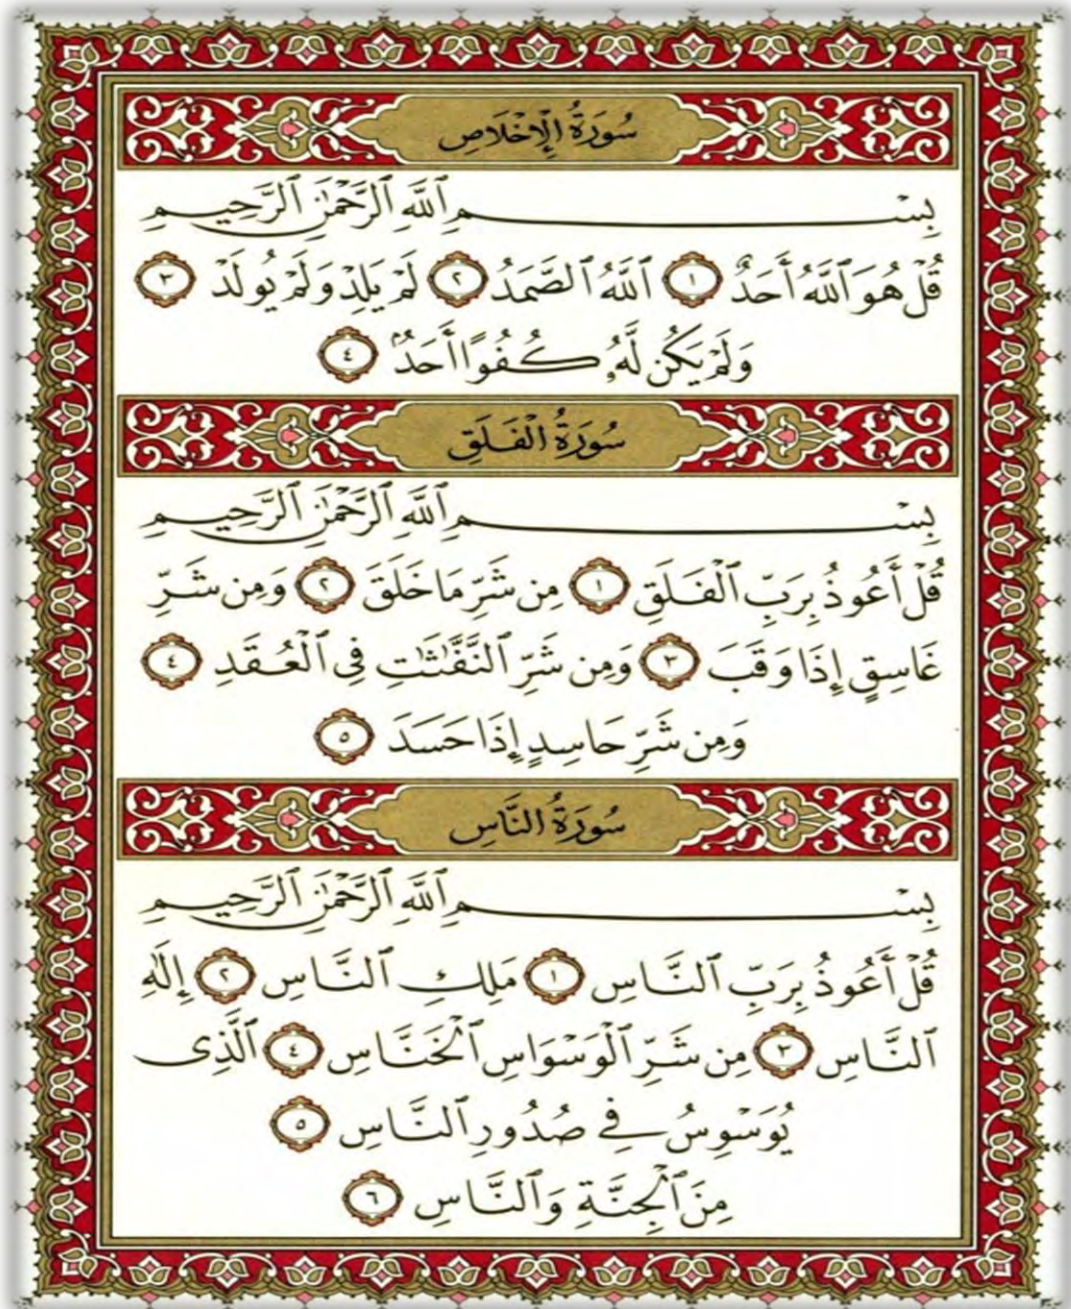 سُورَةُ الْإِخْلَاصِ
بِسْمِ ٱللَّهِ ٱلرَّحْمَٰنِ ٱلرَّحِيمِ
قُلْ هُوَ ٱللَّهُ أَحَدٌ ١ ٱللَّهُ ٱلصَّمَدُ ٢ لَمْ يَلِدْ وَلَمْ يُولَدْ ٣
وَلَمْ يَكُن لَّهُۥ كُفُوًا أَحَدٌۢ ٤
سُورَةُ الْفَلَقِ
بِسْمِ ٱللَّهِ ٱلرَّحْمَٰنِ ٱلرَّحِيمِ
قُلْ أَعُوذُ بِرَبِّ ٱلْفَلَقِ ١ مِن شَرِّ مَا خَلَقَ ٢ وَمِن شَرِّ
غَاسِقٍ إِذَا وَقَبَ ٣ وَمِن شَرِّ ٱلنَّفَّٰثَٰتِ فِى ٱلْعُقَدِ ٤
وَمِن شَرِّ حَاسِدٍ إِذَا حَسَدَ ٥
سُورَةُ النَّاسِ
بِسْمِ ٱللَّهِ ٱلرَّحْمَٰنِ ٱلرَّحِيمِ
قُلْ أَعُوذُ بِرَبِّ ٱلنَّاسِ ١ مَلِكِ ٱلنَّاسِ ٢ إِلَٰهِ
ٱلنَّاسِ ٣ مِن شَرِّ ٱلْوَسْوَاسِ ٱلْخَنَّاسِ ٤ ٱلَّذِى
يُوَسْوِسُ فِى صُدُورِ ٱلنَّاسِ ٥
مِنَ ٱلْجِنَّةِ وَٱلنَّاسِ ٦